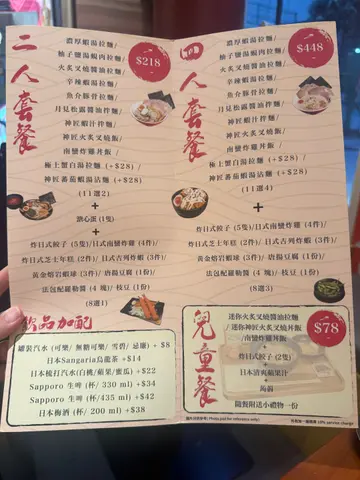 二人套餐
$218
濃厚蝦湯拉麵/
柚子鹽湯蜆肉拉麵/
火炙叉燒醬油拉麵/
辛辣蝦湯拉麵/
魚介豚骨拉麵/
月見松露醬油拌麵/
神匠蝦汁拌麵/
神匠火炙叉燒飯/
南蠻炸雞飯/
極上蟹白湯拉麵 (+$28) /
神匠蕃茄蝦湯沾麵 (+$28)
(11選2)
+
溏心蛋 (1隻)
+
炸日式餃子 (5隻)/日式南蠻炸雞 (4件)/
炸日式芝士年糕 (2件)/日式吉列炸蝦 (3件)/
黃金熔岩蝦球 (3件)/唐揚豆腐 (1份)/
法包配羅勒醬 (4 塊)/枝豆 (1份)
(8選1)
飲品加配
罐裝汽水 (可樂/ 無糖可樂/ 雪碧/ 忌廉) + $8
日本Sangaria烏龍茶 +$14
日本梳打汽水(白桃/蘋果/蜜瓜) +$22
Sapporo 生啤 (杯/ 330 ml) +$34
Sapporo 生啤 (杯/435 ml) +$42
日本梅酒 (杯/ 200 ml) +$38
四人套餐
$448
濃厚蝦湯拉麵/
柚子鹽湯蜆肉拉麵/
火炙叉燒醬油拉麵/
辛辣蝦湯拉麵/
魚介豚骨拉麵/
月見松露醬油拌麵/
神匠蝦汁拌麵/
神匠火炙叉燒飯/
南蠻炸雞飯/
極上蟹白湯拉麵 (+$28) /
神匠蕃茄蝦湯沾麵 (+$28)
(11選4)
+
炸日式餃子 (5隻)/日式南蠻炸雞 (4件)/
炸日式芝士年糕 (2件)/ 日式吉列炸蝦 (3件)/
黃金熔岩蝦球 (3件)/ 唐揚豆腐 (1份)/
法包配羅勒醬 (4 塊)/ 枝豆 (1份)
(8選3)
兒童餐
$78
迷你火炙叉燒醬油拉麵
/迷你神匠火炙叉燒丼飯
/南蠻炸雞丼飯
+
炸日式餃子 (2隻)
+
日本清爽蘋果汁
+
蒟蒻
隨餐附送小禮物一份
圖片只供參考/ Photo just for reference only!
另收加一服務費 10% service charge